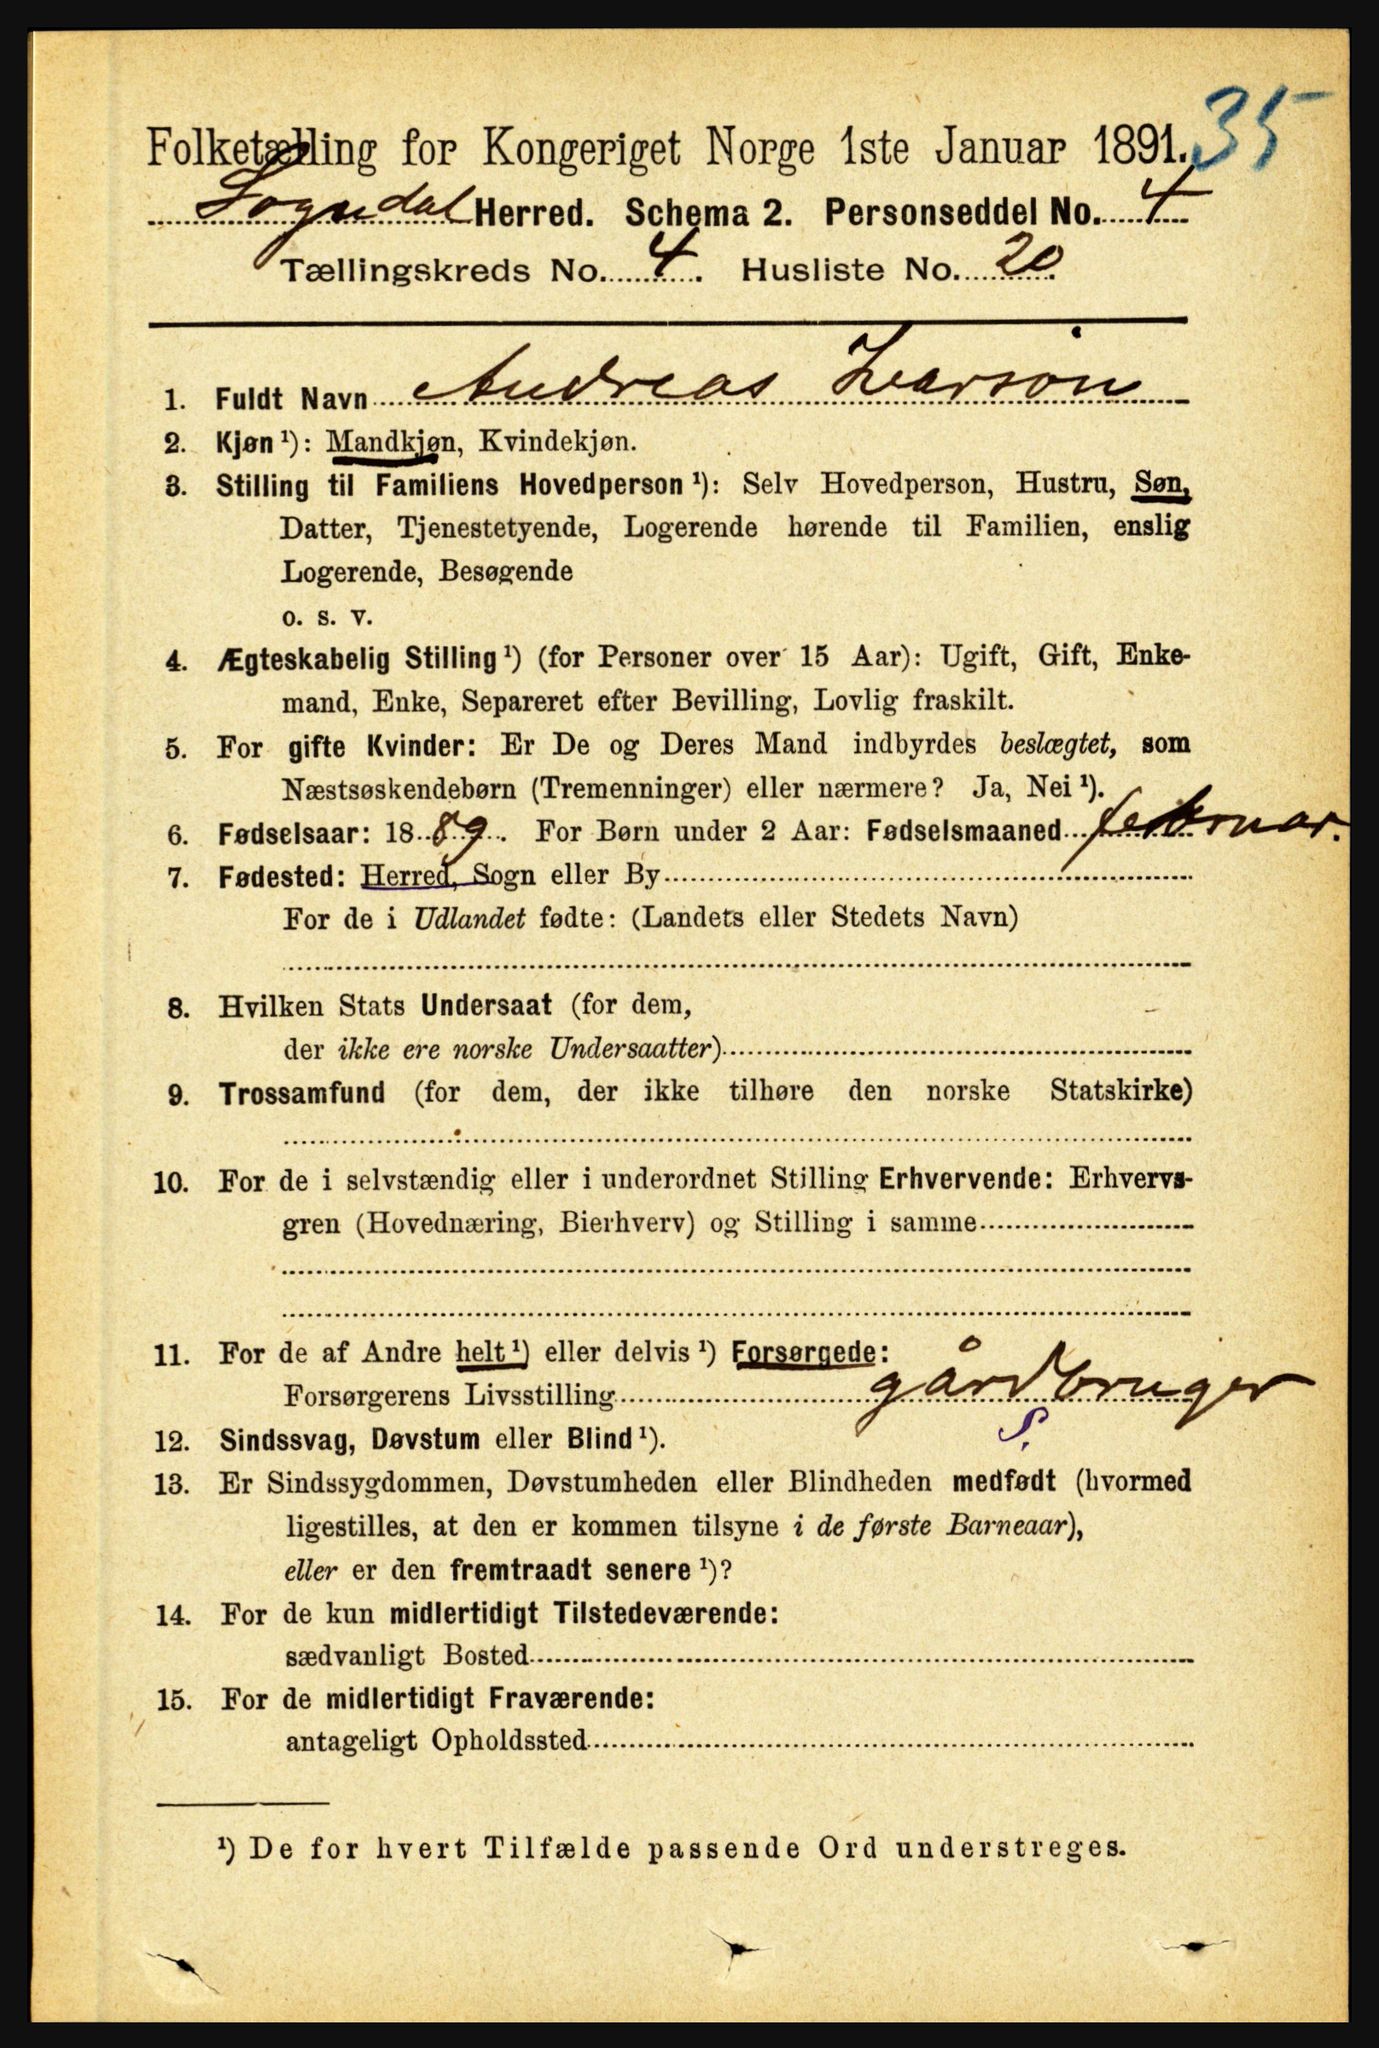 35
Folketælling for Kongeriget Norge 1ste Januar 1891.
Sogndal Herred. Schema 2. Personseddel No. 4
Tællingskreds No. 4. Husliste No. 20.
1. Fuldt Navn Andreas Ivarsön
2. Kjøn ¹): Mandkjøn, Kvindekjøn.
3. Stilling til Familiens Hovedperson ¹): Selv Hovedperson, Hustru, Søn,
Datter, Tjenestetyende, Logerende hørende til Familien, enslig
Logerende, Besøgende
o. s. v.
4. Ægteskabelig Stilling ¹) (for Personer over 15 Aar): Ugift, Gift, Enke-
mand, Enke, Separeret efter Bevilling, Lovlig fraskilt.
5. For gifte Kvinder: Er De og Deres Mand indbyrdes beslægtet, som
Næstsøskendebørn (Tremenninger) eller nærmere? Ja, Nei ¹).
6. Fødselsaar: 1889. For Børn under 2 Aar: Fødselsmaaned februar.
7. Fødested: Herred, Sogn eller By
For de i Udlandet fødte: (Landets eller Stedets Navn)
8. Hvilken Stats Undersaat (for dem,
der ikke ere norske Undersaatter)
9. Trossamfund (for dem, der ikke tilhøre den norske Statskirke)
10. For de i selvstændig eller i underordnet Stilling Erhvervende: Erhvervs-
gren (Hovednæring, Bierhverv) og Stilling i samme
11. For de af Andre helt ¹) eller delvis ¹) Forsørgede:
Forsørgerens Livsstilling gårdbruger
S.
12. Sindssvag, Døvstum eller Blind ¹).
13. Er Sindssygdommen, Døvstumheden eller Blindheden medfødt (hvormed
ligestilles, at den er kommen tilsyne i de første Barneaar),
eller er den fremtraadt senere ¹)?
14. For de kun midlertidigt Tilstedeværende:
sædvanligt Bosted
15. For de midlertidigt Fraværende:
antageligt Opholdssted
¹) De for hvert Tilfælde passende Ord understreges.